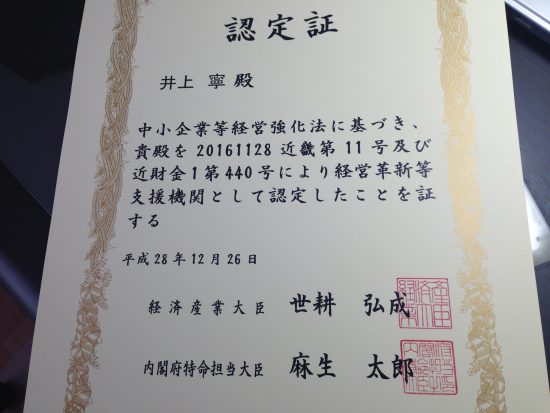 認定証
井上 寧 殿
中小企業等経営強化法に基づき、
貴殿を20161128近畿第11号及び
近財金1第440号により経営革新等
支援機関として認定したことを証
する
平成28年12月26日
経済産業大臣 世耕 弘成
内閣府特命担当大臣 麻生 太郎